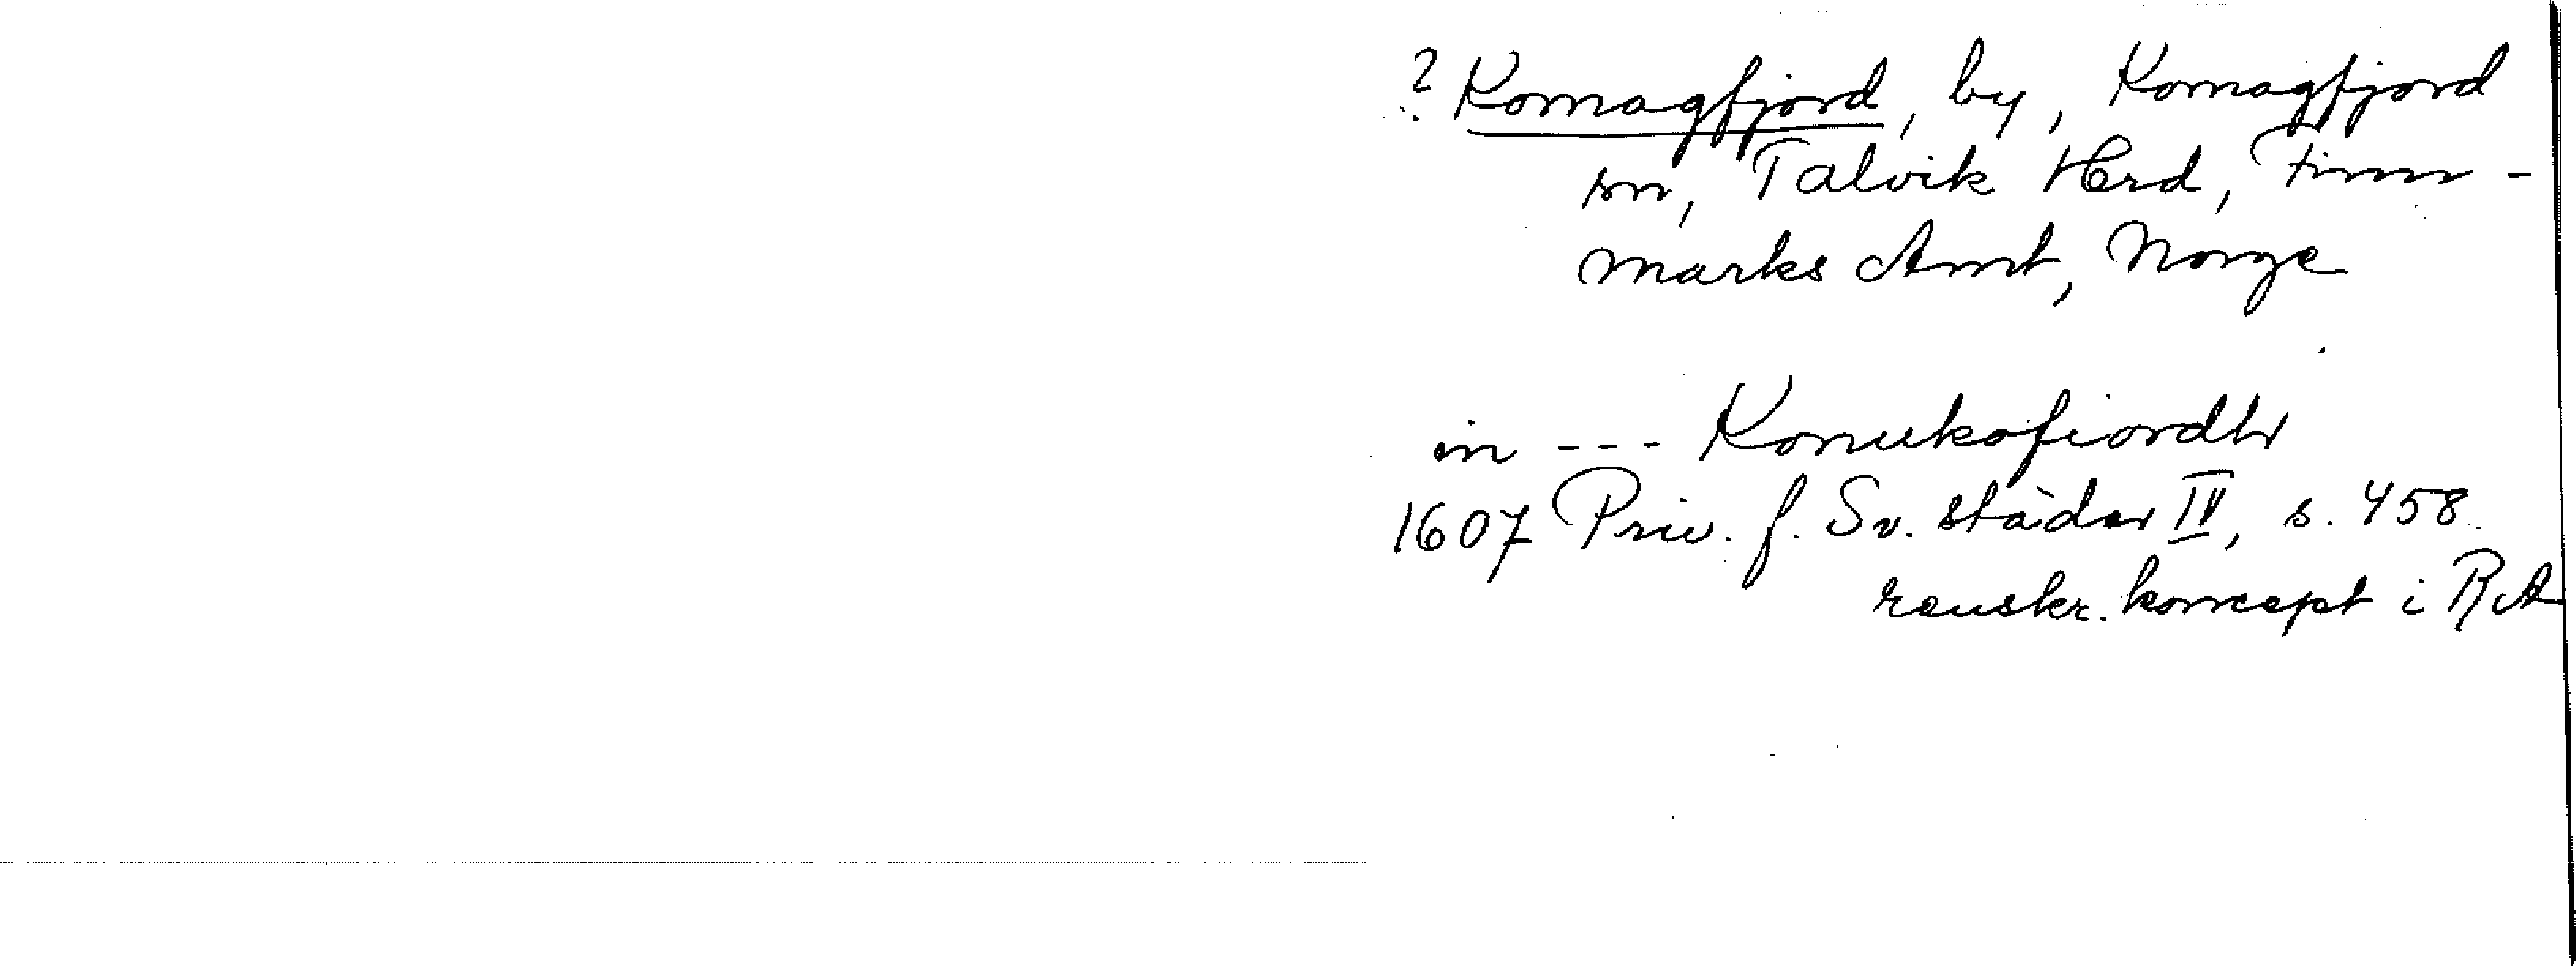 ? Komagfjord, by, Komagfjord
sn, Talvik Herd, Finn-
marks Amt, Norge
in --- Konukofiordhr
1607 Priv. f. Sv. städer IV, s. 458.
renskr. koncept i RA